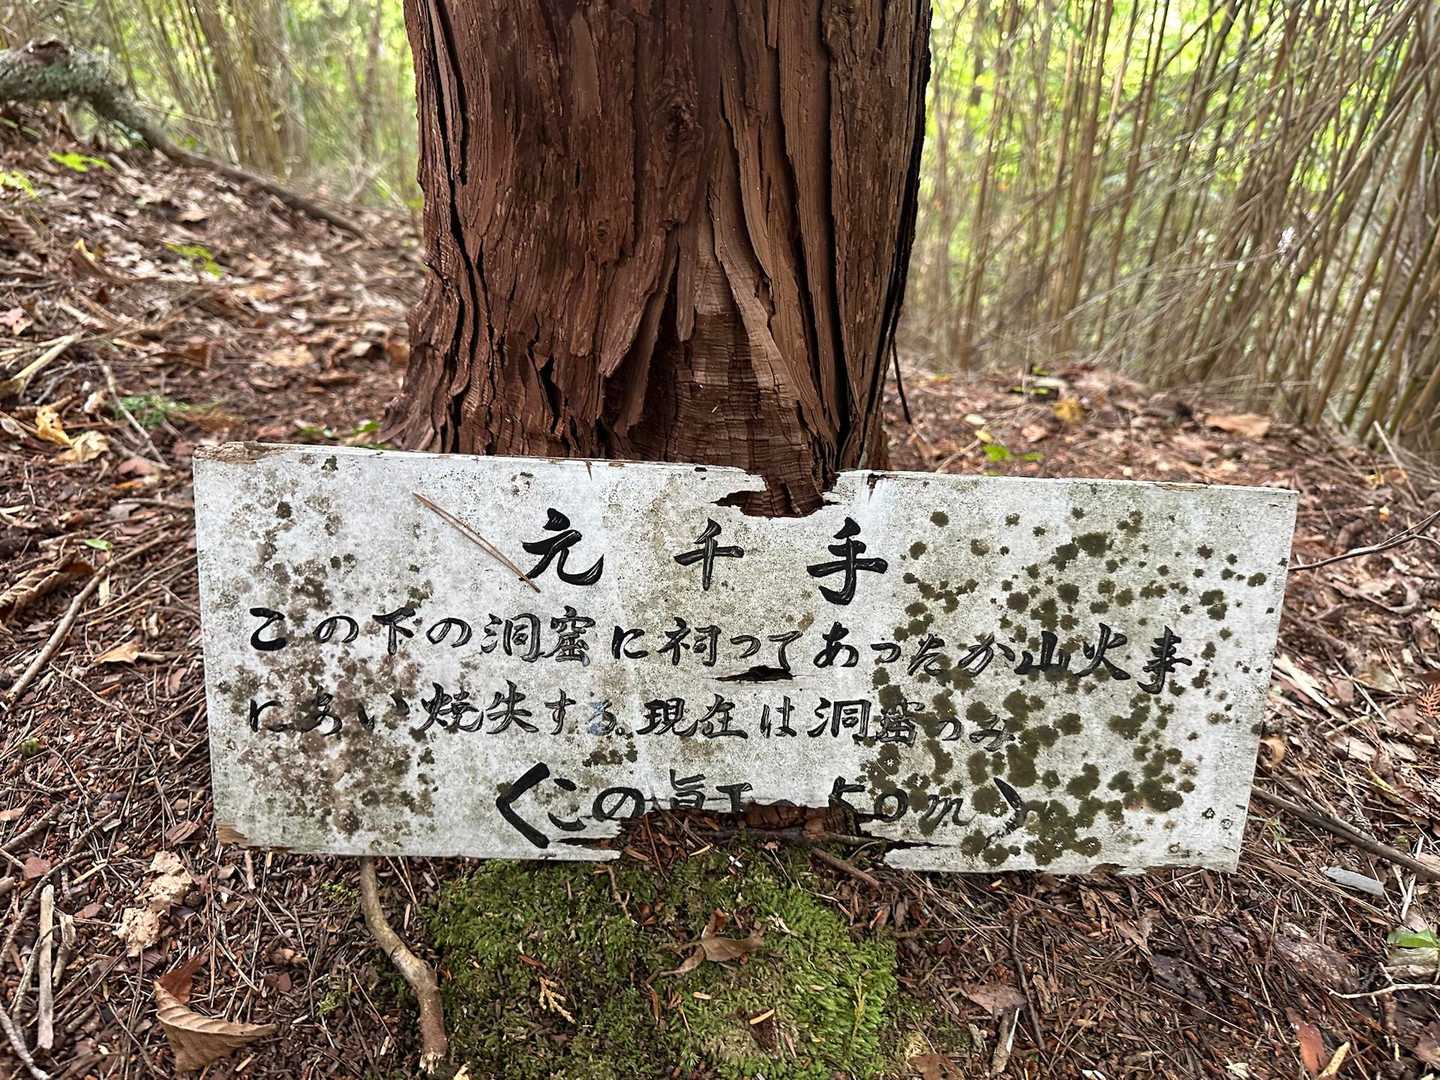 元千手
この下の洞窟に祠ってあったが山火事
にあい焼失する。現在は洞窟のみ
くこの真下へ50m〉